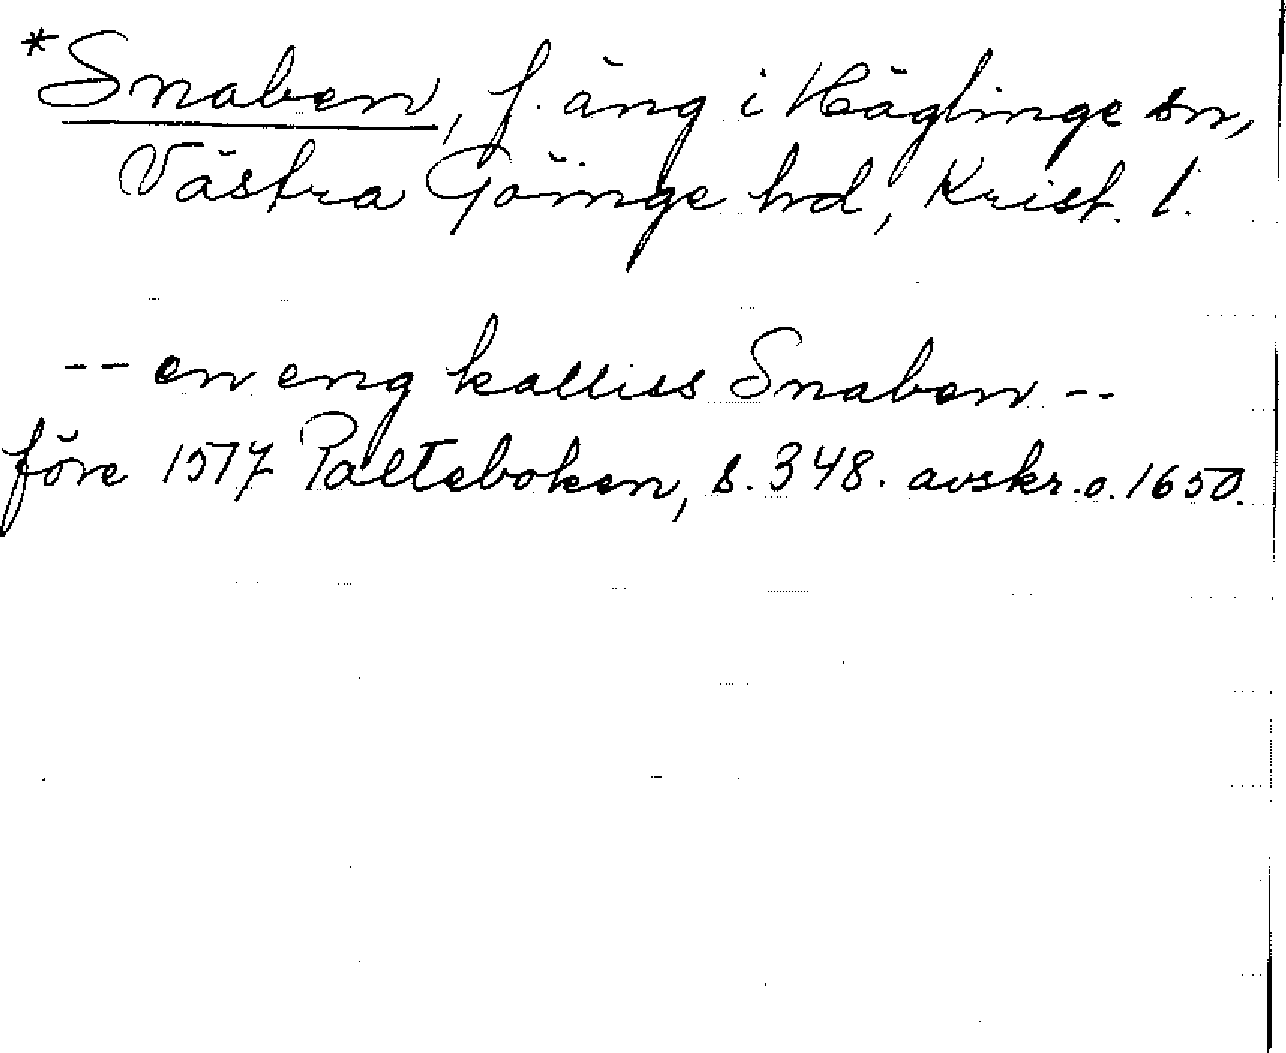 *Snaben, f. äng i Häglinge sn,
Västra Göinge hd, Krist. l.
-- en eng kalliss Snaben --
före 1577 Palteboken, s. 348. avskr. o. 1650.